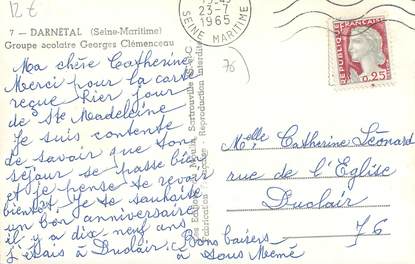 12€
7 — DARNÉTAL (Seine-Maritime)
Groupe scolaire Georges Clémenceau
23-7
1965
SEINE MARITIME
76
REPUBLIQUE FRANCAISE
0,25
Ma chère Catherine
Merci pour la carte
reçue hier jour
de Ste Madeleine
Je suis contente
de savoir que ton
séjour se passe bien
et je pense te revoir
bientôt. Je te souhaite
un bon anniversaire
il y a dix neuf ans
j'étais à Duclair.
Bons baisers
à tous Mémé
Reproduction interdite
Melle Catherine Léonard
rue de l'Eglise
Duclair
76